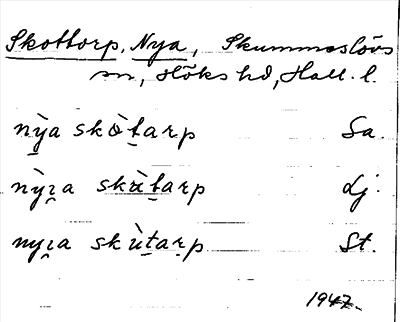 Skottorp, Nya, Skummeslövs
sn, Höks hd, Hall. l.
nỳa skòt̠arp Sa.
nỳɪ̯a skùt̠arp Lj.
nyɪ̯a skùt̠aṛp St.
1947.